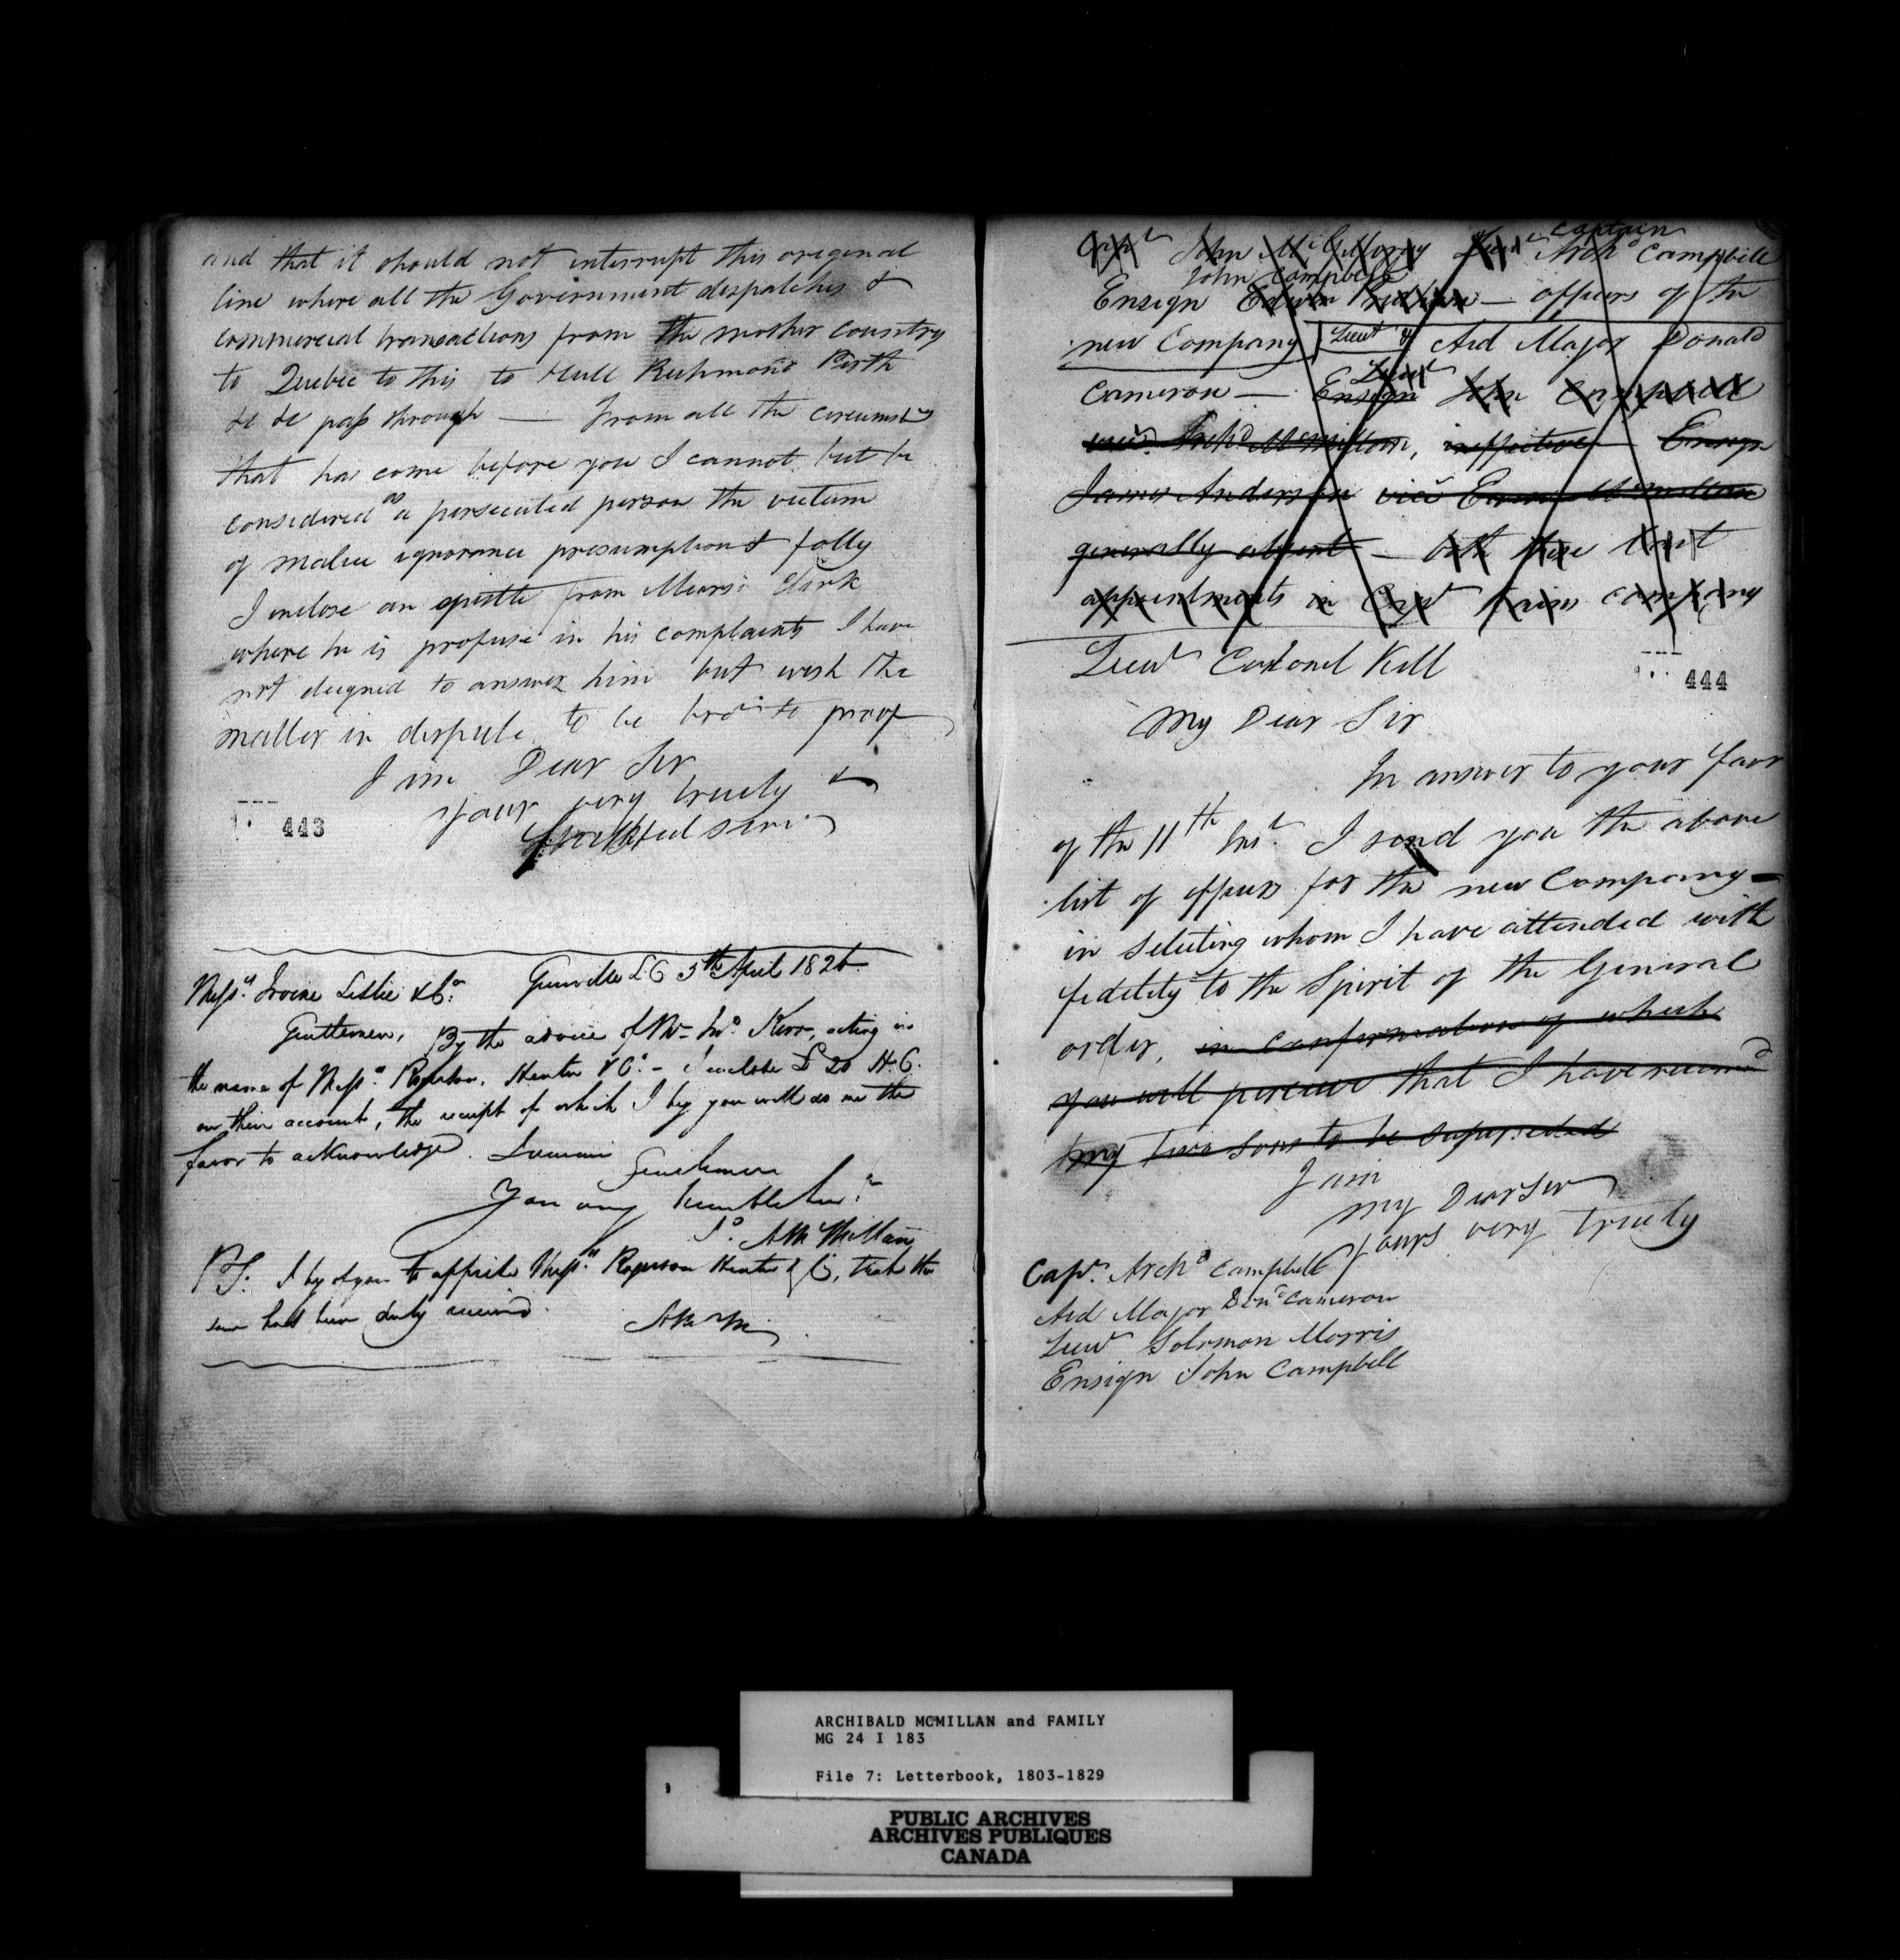 and that it should not interrupt this original
line where all the Government despatches &
commercial transactions from the mother country
to Quebec to this to Hull Richmond Perth
&c &c pass through — From all the circumsts
that has come before you I cannot but be
considered as a persecuted person the victim
of malice ignorance presumption & folly
I inclose an epistle from Mears: Clark
where he is profuse in his complaints I have
not deigned to answer him but wish the
matter in dispute to be brot to proof
I am Dear Sir
your very truely &
faithful serv.
443
Messrs Irvine Leslie & Co. Grenville L C 5th April 1826
Gentlemen, By the advice of Mr Jno. Kerr, acting in
the name of Messrs. Rogerson, Hunter & Co. – I inclose £ 20 H.C.
on their account, the receipt of which I beg you will do me the
favor to acknowledge. I remain
Gentlemen
Your very humble Servt
A McMillan
P.S. I beg of you to apprise Messrs. Rogerson Hunter & Co, that the
same has been duly received.
A McM
Capt John McGillvray Lieut captain Archd Campbell
Ensign Edwin John Campbell — officers of the
new Company Lieut & Aid Major Donald
Cameron — Ensign Lieut John Campbell
vice Archd McMillan, ineffective — Ensign
James Anderson vice Ewen McMillan
generally absent — both these last
appointments in Capt company
Lieut Colonel Kell
444
My Dear Sir
In answer to your favr
of the 11th Inst. I send you the above
list of officers for the new Company —
in selecting whom I have attended with
fidelity to the Spirit of the General
order, in confirmation of which
you will perceive that I have recomd
my two sons to be superseded
I am
My Dear Sir
yours very truely
Capt. Archd Campbell
Aid Major Dond Cameron
Lieut Solomon Morris
Ensign John Campbell
ARCHIBALD MCMILLAN and FAMILY
MG 24 I 183
File 7: Letterbook, 1803-1829
PUBLIC ARCHIVES
ARCHIVES PUBLIQUES
CANADA